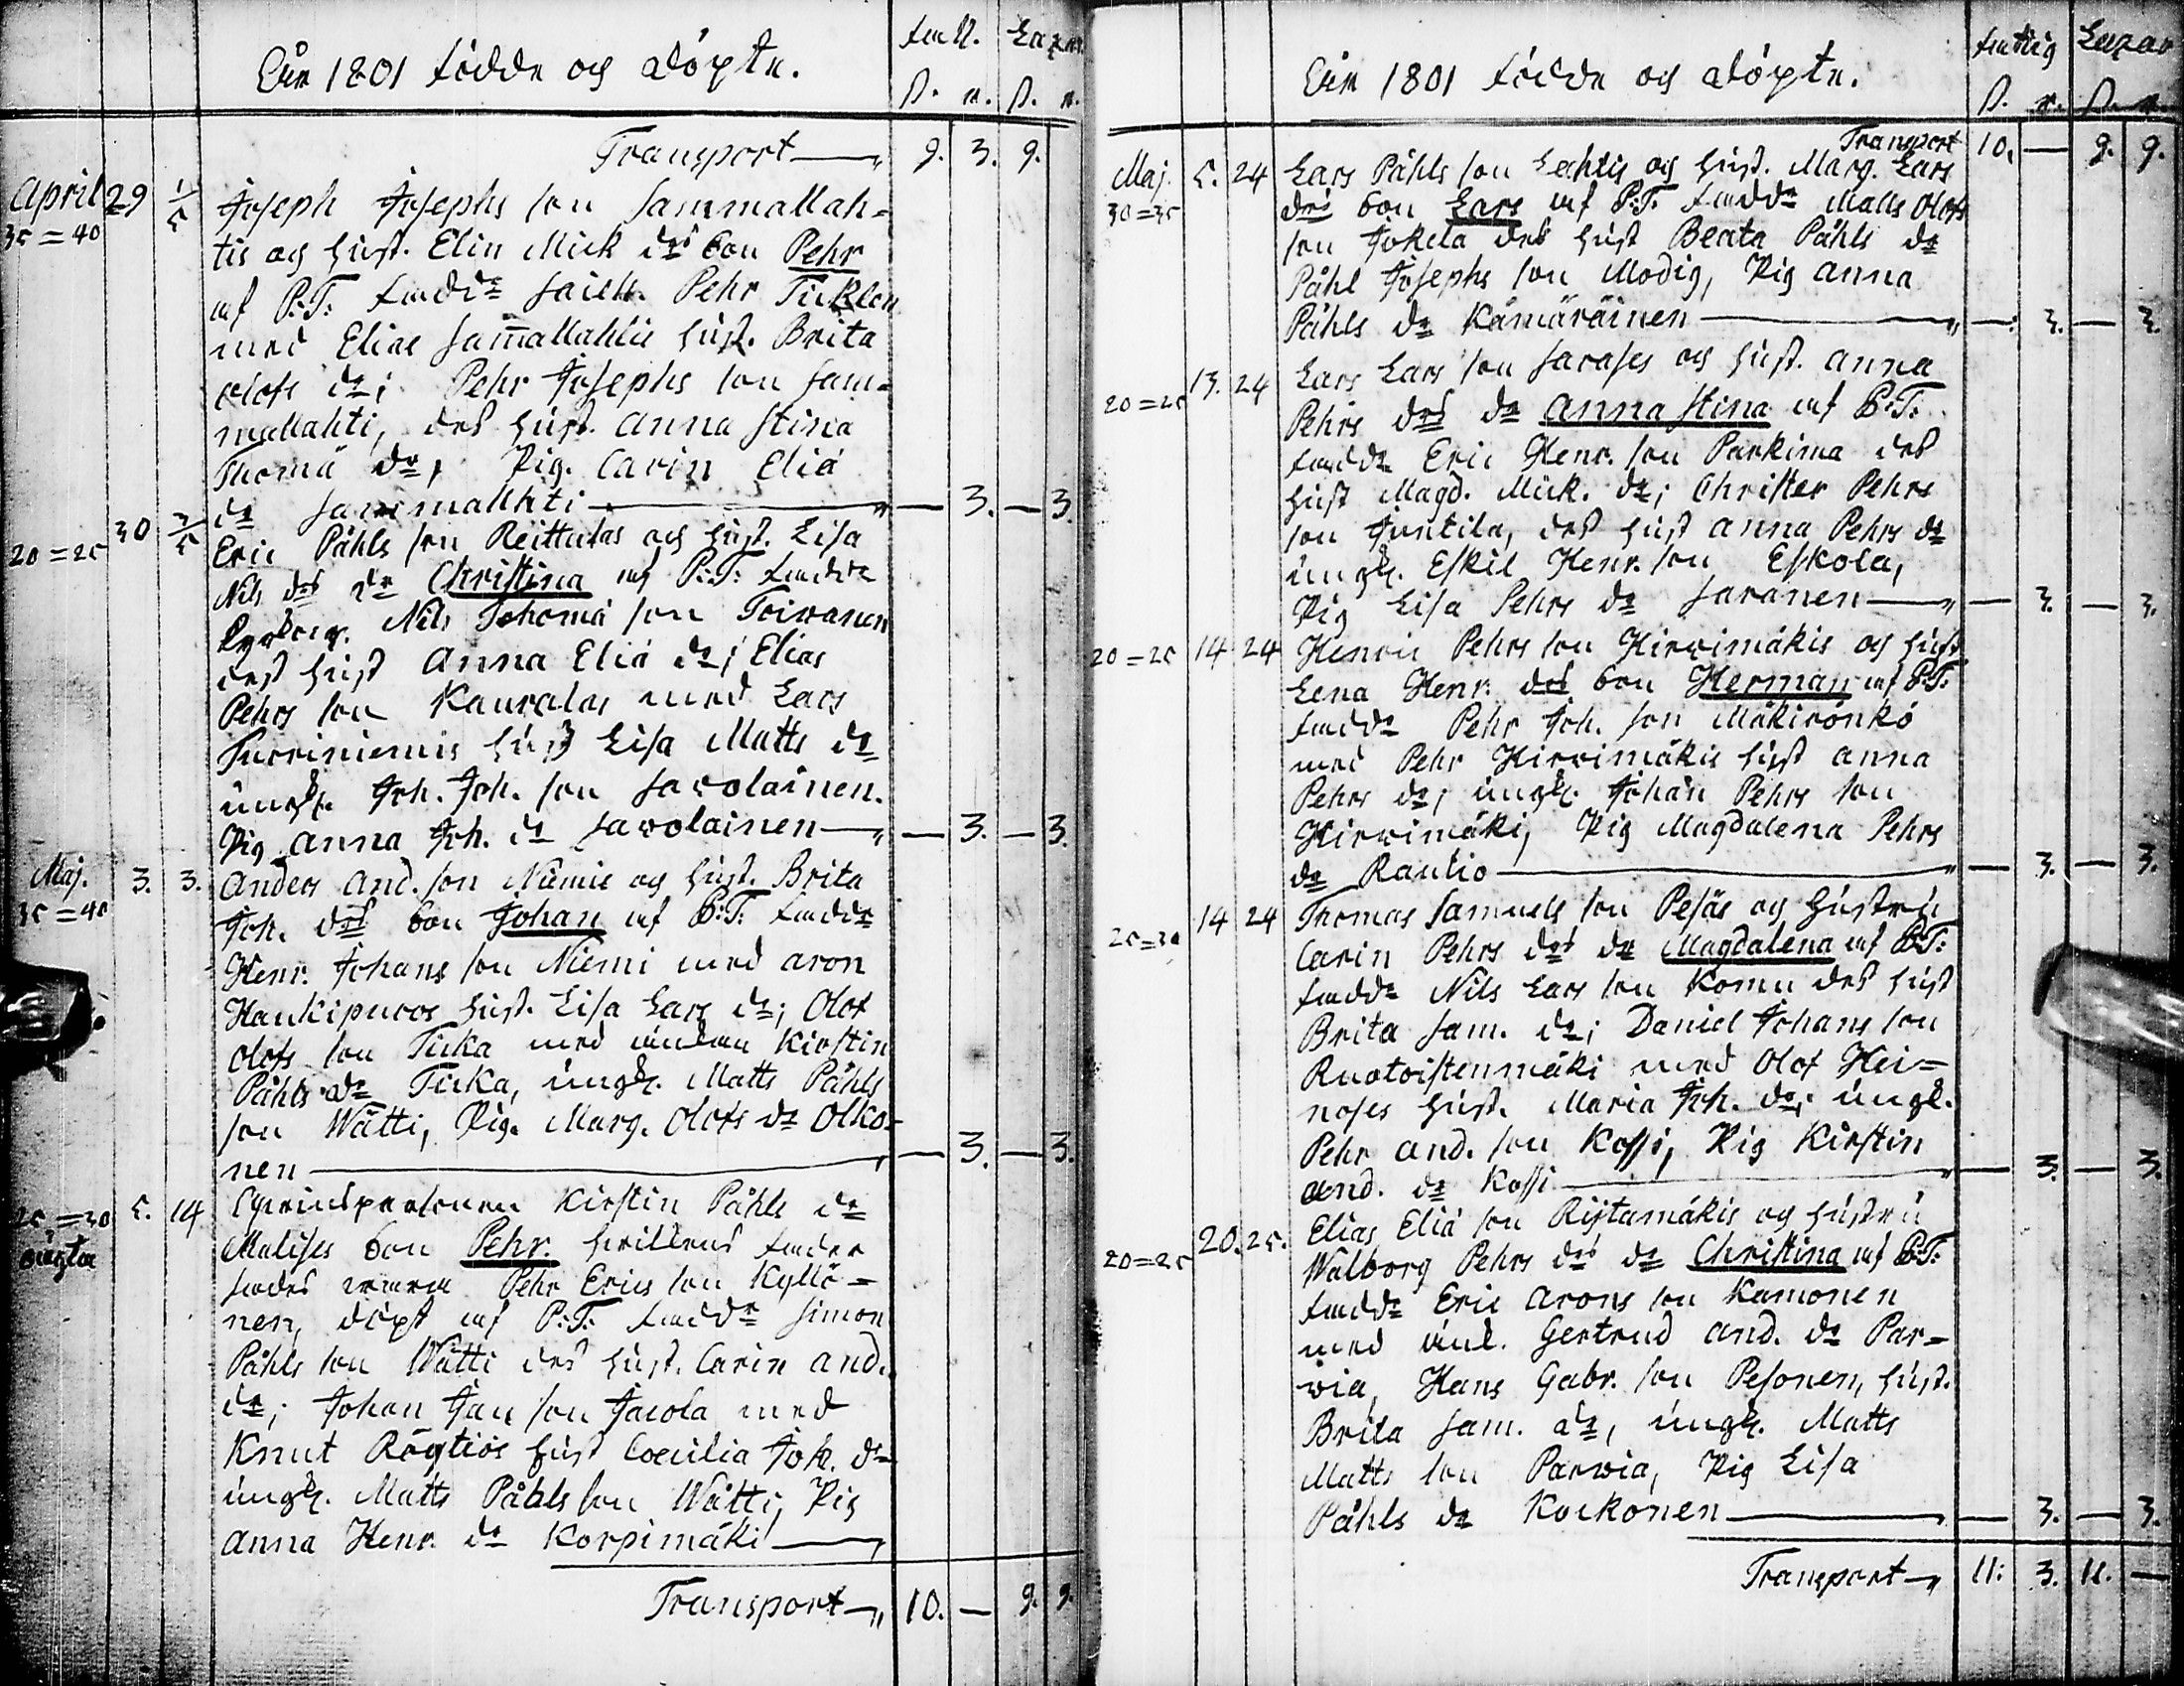 Åhr 1801 födde och döpte.
Fattig. Lazar.
ß. r. ß. r.
Transport 9. 3. 9.
April 29 1/5 Joseph Josephs son Sammallah-
35=40
tis och hust. Elin Mick drs son Pehr
af P:T: fadd: Pehr Ticklen
med Elias Sam̄allahtis hust. Brita
Olofs dr; Pehr Josephs son Sam-
mallahti, des hust. Anna Stina
Thomä dr, Pig. Carin Eliä
dr Sammallahti — 3. — 3.
20=25 30 2/5 Eric Påhls son Reittulas och hust. Lisa
Nils drs dr Christina af P:T: fadd:
Nils Thomä son Toivanen
des hust Anna Eliä dr; Elias
Pehrs son Kauralas med Lars
Turriniemis hust Lisa Matts dr
ungk. Joh. Joh. son Savolainen.
Pig Anna Joh. dr Savolainen — 3. — 3.
Maj. 3. 3. Anders And. son Niemis och hust. Brita
35=40
Joh. drs son Johan af P:T: fadd:
Henr. Johans son Niemi med Aron
Haukipuros hust. Lisa Lars dr; Olof
Olofs son Ticka med enkan Kirstin
Påhls dr Ticka, ungk. Matts Påhls
son Wätti, Pig. Marg. Olofs dr Olko-
nen — 3. — 3.
25=30 5. 14 Qvinspersonen Kirstin Påhls dr
Malises son Pehr. hvilkens fader
sades vara Pehr Erics son Kyllö-
nen, döpt af P:T: fadd: Simon
Påhls son Wätti des hust. Carin And.
dr; Johan Jan son Jacola med
Knut Röytiös hust Cœcilia Joh. dr
ungk. Matts Påhls son Wätti, Pig
Anna Henr. dr Korpimäki
Transport 10. — 9. 9.
Åhr 1801 födde och döpte.
Fattig Lazar
ß. r. ß. r.
Transport 10. — 9. 9.
Maj. 5. 24 Lars Påhls son Lahtis och hust. Marg. Lars
30=35
drs son Lars af P:T: fadd: Matts Olofs
son Jokela des hust Beata Påhls dr
Påhl Josephs son Modig, Pig Anna
Påhls dr Kämäräinen — 3. — 3.
20=25 13. 24 Lars Lars son Sarases och hust. Anna
Pehrs drs dr Anna Stina af P:T:
fadd: Eric Henr. son Parkima des
hust Magd. Mick. dr; Christer Pehrs
son Juntila, des hust Anna Pehrs dr
ungk. Eskil Henr. son Eskola,
Pig Lisa Pehrs dr Saranen — 3. — 3.
20=25 14 24 Henric Pehrs son Hirvimäkis och hust
Lena Henr. drs son Herman af P:T:
fadd: Pehr Joh. son Mäkirönkö
med Pehr Hirvimäkis hust Anna
Pehrs dr, ungk. Johan Pehrs son
Hirvimäki, Pig Magdalena Pehrs
dr Rautio — 3. — 3.
25=30 14 24 Thomas Samuels son Pesäs och hustru
Carin Pehrs drs dr Magdalena af P:T:
fadd: Nils Lars son Komu des hust
Brita Sam. dr; Daniel Johans son
Ruotoistenmäki med Olof Hei-
noses hust. Maria Joh. dr; ungk.
Pehr And. son Kossi, Pig Kirstin
And. dr Kossi — 3. — 3.
20=25 20. 25. Elias Eliä son Ristamäkis och hustru
Walborg Pehrs drs dr Christina af P:T:
fadd: Eric Arons son Kamonen
med enk. Gertrud And. dr Par-
via, Hans Gabr. son Pesonen, hust.
Brita Sam. dr, ungk. Matts
Matts son Parvia, Pig Lisa
Påhls dr Kockonen — 3. — 3.
Transport 11: 3. 11. —